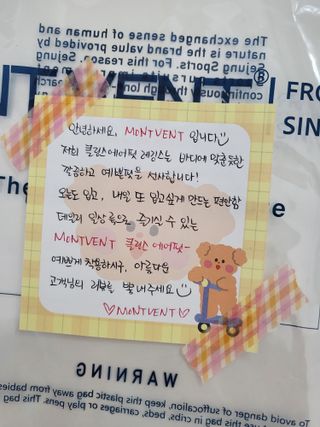 The exchanged sense of human and
nature is the brand value provided by
Sejung Sports. For this reason, Sejung
MONTVENT®
FRO
SIN
안녕하세요, MONTVENT 입니다
저희 클링스에어핏 레깅스는 바디에 맞춘듯한
깔끔하고 예쁜핏을 선사합니다!
오늘도 입고, 내일 또 입고싶게 만드는 편안함
데일리 일상룩으로 즐기실 수 있는
MONTVENT 클링스 에어핏~
예쁘게 착용하시구, 아름다운
고객님의 리뷰를 뽐내주세요
♡MONTVENT♡
WARNING
To avoid danger of suffocation, keep this plastic bag away from babies
this bag in cribs, beds, carriages or play pens. This bag